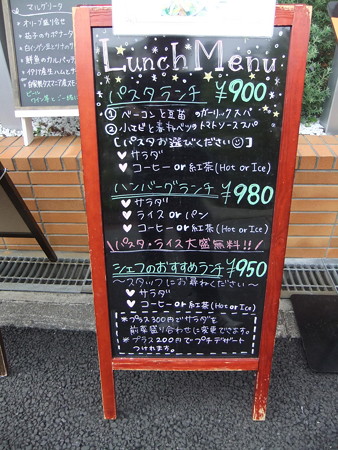 マルゲリータ
・オリーブ盛り合せ
・茄子のカポナータ
・鮮魚のカルパッチ
Lunch Menu
パスタランチ ¥900
① ベーコンと豆苗のガーリックスパ
② 小エビと春キャベツのトマトソーススパ
[パスタお選びください☺]
♥ サラダ
♥ コーヒー or 紅茶(Hot or Ice)
ハンバーグランチ ¥980
♥ サラダ
♥ ライス or パン
♥ コーヒー or 紅茶(Hot or Ice)
パスタ・ライス大盛無料!!
シェフのおすすめランチ ¥950
～スタッフにお尋ねください～
♥ サラダ
♥ コーヒー or 紅茶(Hot or Ice)
※プラス300円でサラダを
前菜盛り合わせに変更できます。
※プラス200円でプチデザート
つけれます。